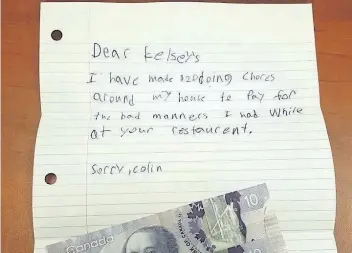 Dear Kelseys
I have made $20 doing chores
around my house to pay for
the bad manners I had while
at your restaurent.
Sorry, colin
Canada
10
10